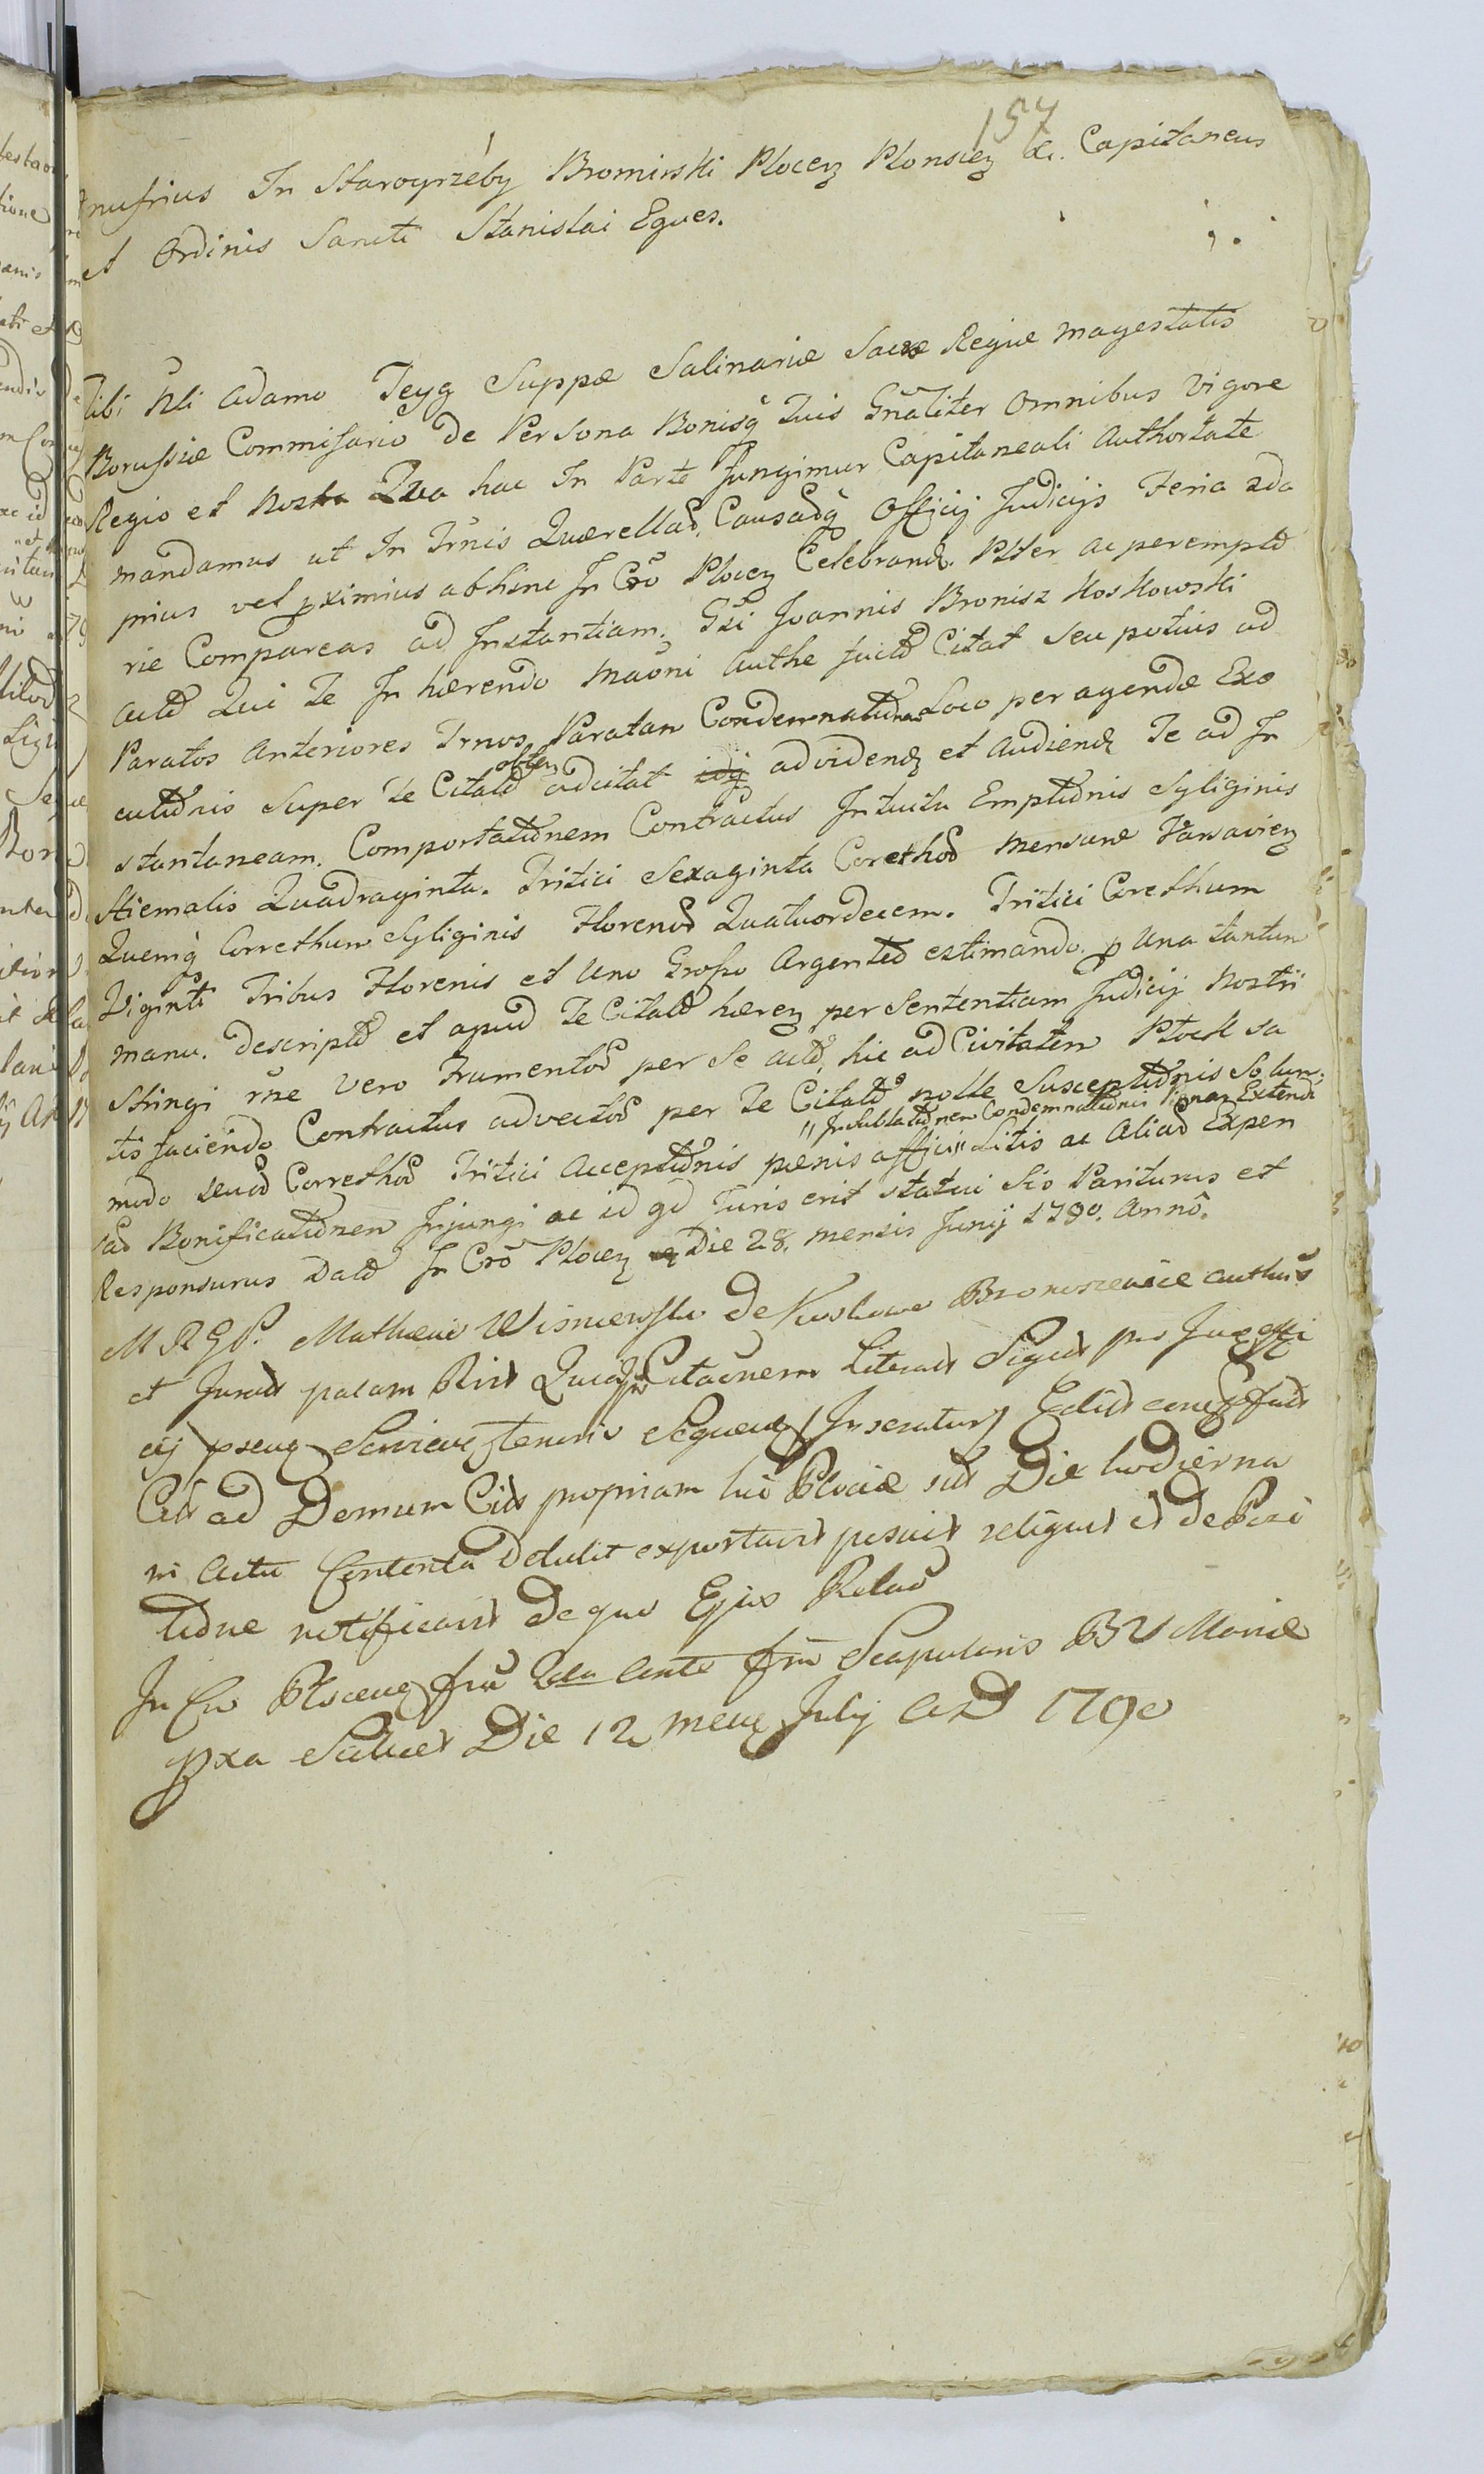 157
nufrius In Starogrzeby Bromirski Plocen Plonscen &. Capitaneus
et Ordinis Sancti Stanislai Eques.
Tibi Nli Adamo Teyg Suppæ Salinariæ Sacræ Regiæ Magestatis
Borussiæ Commissario de Persona Bonisq Tuis Gnaliter Omnibus Vigore
Regio et Nostra Qua hac In Parte Fungimur Capitaneali Authortate
mandamus ut In Trnis Quærellar, Causarq Officij Judicijs Feria 2da
prius vel pximius abhinc In Cro Plocen Celebrand. Plter ac perempto
rie Compareas ad Instantiam. Gsi Joannis Bronisz Koskowski
Actor Qui Te In hærendo Maoni Authe factæ Citat seu potius ad
Paratos Anteriores Trnos Paratam Condemnationis Loco peragendæ Exe
cutionis Super Te Citato obten adcitat ad videnđ et Audiend Te ad In
stantaneam. Comportationem Contractus Intuitu Emptionis Syliginis
Hiemalis Quadraginta. Tritici Sexaginta Corethor mensuræ Varsavien
Quemq Correthum Syliginis Florenor Quatuordecem. Tritici Corethum
Viginti Tribus Florenis et Uno Grosso Argenteo estimando. p Una tantum
manu. Descripto et apud Te Citato hæren per Sententiam Judicij Nostri
Stringi rne Vero Frumentor per Se Acto, hic ad Civitatem Plock sa
tis faciendo Contractus advector per Te Citato nolle Susceptionis Solum,
modo Correthor Tritici Acceptionis pænis affici " Litis ac Aliar Expen
" In Sublationem Condemnationis Pænar Extendi
sar Bonificationem Injungi ac id qd Juris erit statui Sis Pariturus et
Responsurus Dato In Cro Plocen Die 28. mensis Junij 1790. Anno.
M R G P. Mathæus Wisniewski de Koskowo Bronoszewice Authus
et Jurats palam Rivit Quia Citationem Literats Sigilt
Cit ad Domum Cits propriam hic Plociæ sit Die hodierna
in Actu Contenta Detulit exportavit posuit reliquit et de Posi
tione notificavit de quo Ejus Relao
In Cro Plocen fria 2da Ante frm Scapularis B V Mariæ
pxa Scilicet Die 12 mens July A D 1790